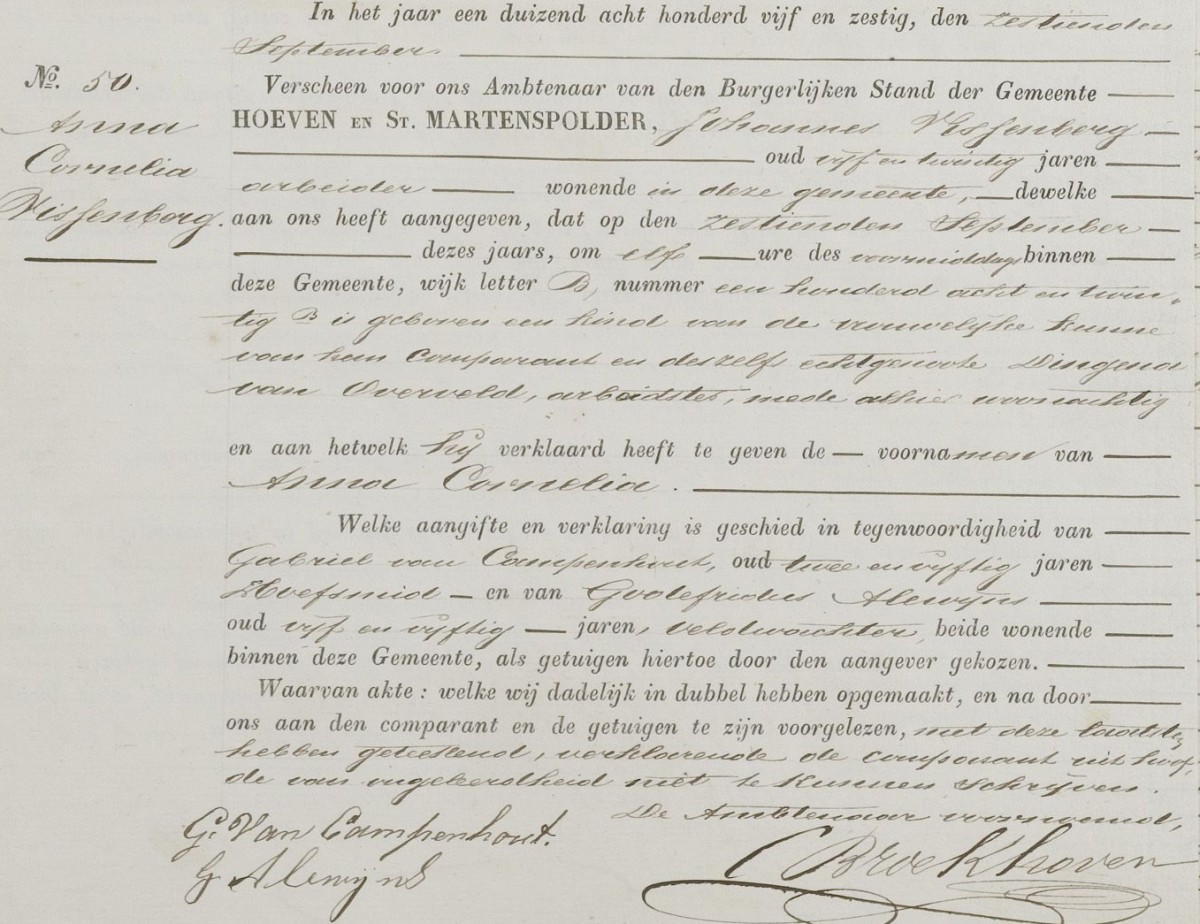 In het jaar een duizend acht honderd vijf en zestig, den zestienden
September.
No. 50.
Anna
Cornelia
Vissenberg.
Verscheen voor ons Ambtenaar van den Burgerlijken Stand der Gemeente
HOEVEN EN ST. MARTENSPOLDER, Johannes Vissenberg
oud vijf en twintig jaren
arbeider wonende in deze gemeente, dewelke
aan ons heeft aangegeven, dat op den zestienden September
dezes jaars, om elf ure des voormiddags binnen
deze Gemeente, wijk letter B, nummer een honderd acht en twin-
tig B is geboren een kind van de vrouwelijke kunne
van hem comparant en deszelfs echtgenoote Dingena
van Overveld, arbeidster, mede alhier woonachtig
en aan hetwelk hij verklaard heeft te geven de voornamen van
Anna Cornelia.
Welke aangifte en verklaring is geschied in tegenwoordigheid van
Gabriel van Campenhout, oud twee en vijftig jaren
Hoefsmid en van Godefridus Alewijns
oud vijf en vijftig jaren, veldwachter, beide wonende
binnen deze Gemeente, als getuigen hiertoe door den aangever gekozen.
Waarvan akte: welke wij dadelijk in dubbel hebben opgemaakt, en na door
ons aan den comparant en de getuigen te zijn voorgelezen, met deze laatsten
hebben geteekend, verklarende de comparant uit hoof-
de van ongeleerdheid niet te kunnen schrijven.
De Ambtenaar voornoemd,
G. Van Campenhout.
G Alewijns
C Broekhoven